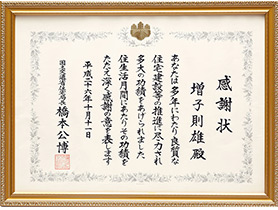 感謝状
増子則雄殿
あなたは多年にわたり良質な
住宅建設等の推進に尽力され
多大の功績をあげられました
住生活月間にあたりその功績を
たたえ深く感謝の意を表します
平成二十六年十月十一日
国土交通省住宅局長 橋本公博